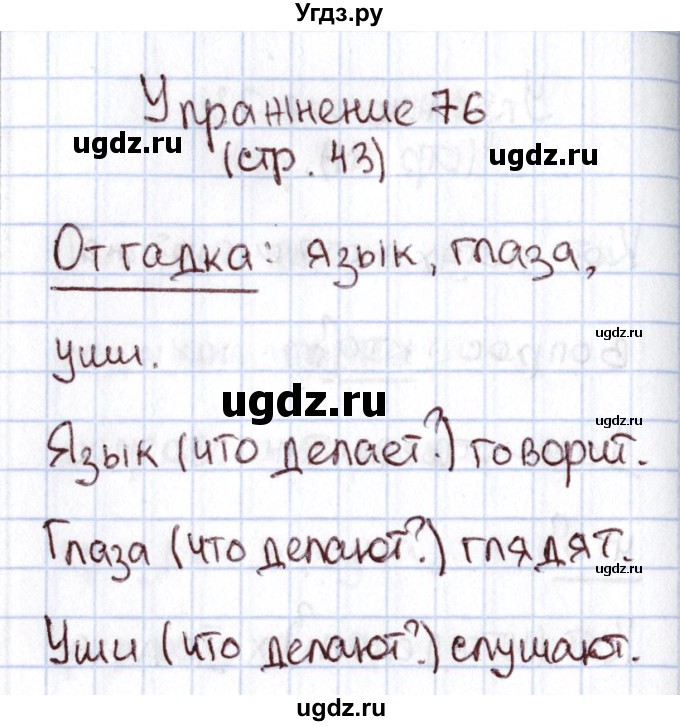 Угдз.ру
Упражнение 76
ugdz.ru
ugdz.ru
(стр. 43)
Отгадка: язык, глаза,
ugdz.ru
уши.
ugdz.ru
ugdz.ru
Язык (что делает?) говорит.
Глаза (что делают?) глядят.
ugdz.ru
Уши (что делают?) слушают.
ugdz.ru